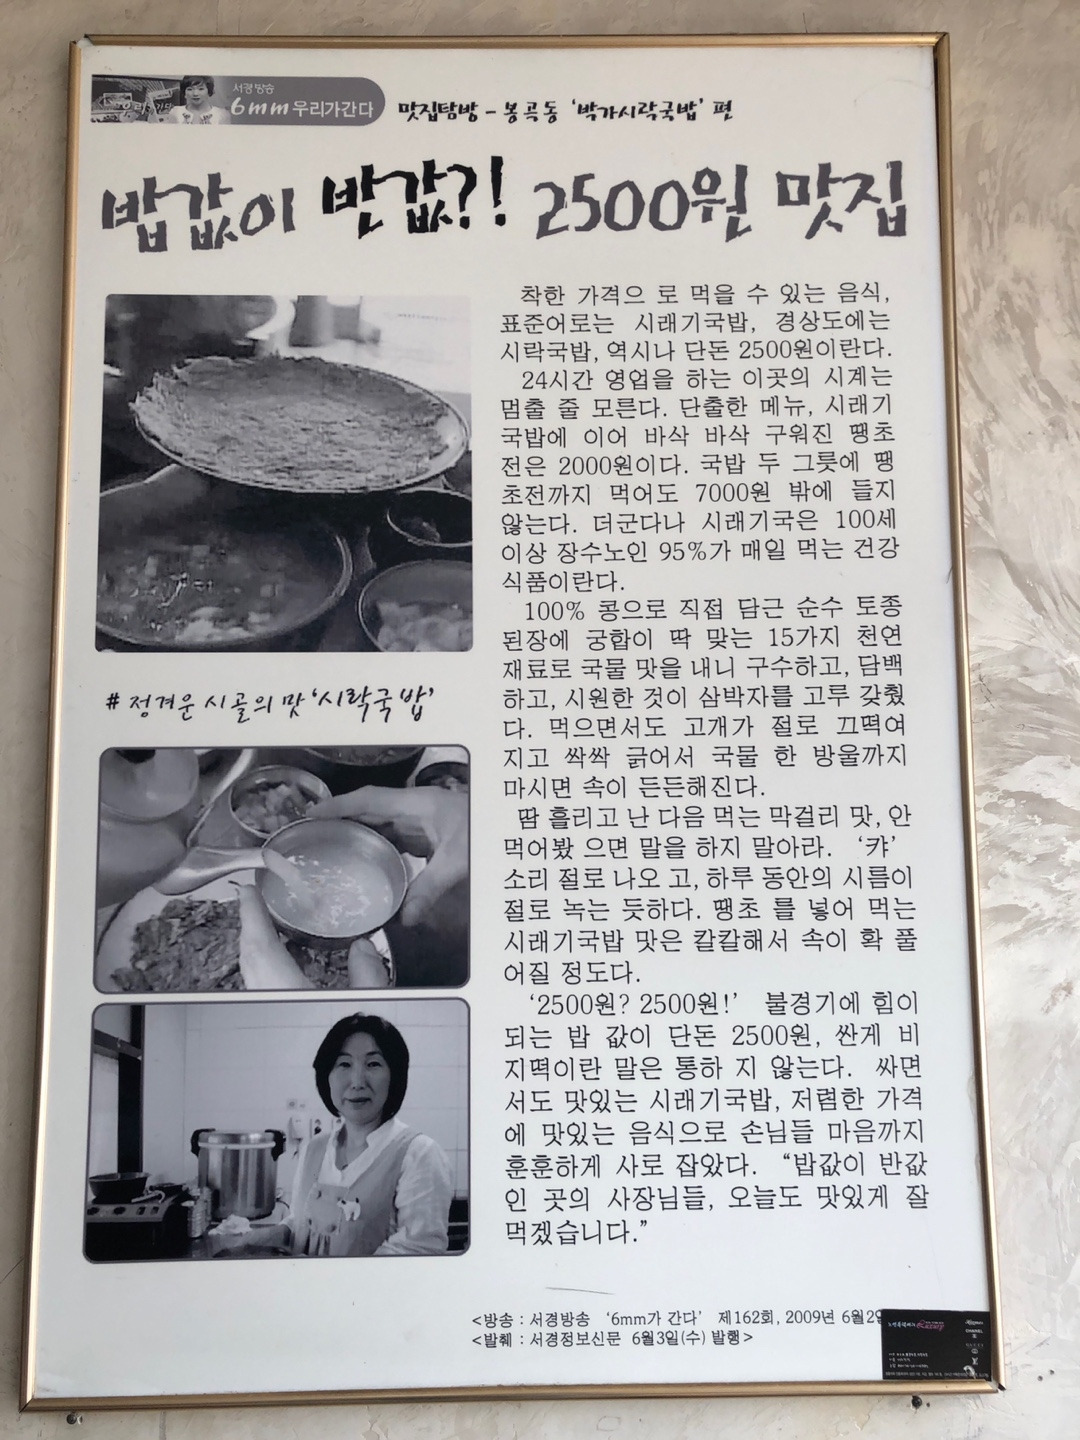 서경방송
6mm 우리가간다
맛집탐방 - 봉곡동 '박가시락국밥' 편
밥값이 반값?! 2500원 맛집
착한 가격으 로 먹을 수 있는 음식,
표준어로는 시래기국밥, 경상도에는
시락국밥, 역시나 단돈 2500원이란다.
24시간 영업을 하는 이곳의 시계는
멈출 줄 모른다. 단출한 메뉴, 시래기
국밥에 이어 바삭 바삭 구워진 땡초
전은 2000원이다. 국밥 두 그릇에 땡
초전까지 먹어도 7000원 밖에 들지
않는다. 더군다나 시래기국은 100세
이상 장수노인 95%가 매일 먹는 건강
식품이란다.
100% 콩으로 직접 담근 순수 토종
된장에 궁합이 딱 맞는 15가지 천연
재료로 국물 맛을 내니 구수하고, 담백
하고, 시원한 것이 삼박자를 고루 갖췄
다. 먹으면서도 고개가 절로 끄떡여
지고 싹싹 긁어서 국물 한 방울까지
마시면 속이 든든해진다.
땀 흘리고 난 다음 먹는 막걸리 맛, 안
먹어봤 으면 말을 하지 말아라. '캬'
소리 절로 나오 고, 하루 동안의 시름이
절로 녹는 듯하다. 땡초 를 넣어 먹는
시래기국밥 맛은 칼칼해서 속이 확 풀
어질 정도다.
'2500원? 2500원!' 불경기에 힘이
되는 밥 값이 단돈 2500원, 싼게 비
지떡이란 말은 통하 지 않는다. 싸면
서도 맛있는 시래기국밥, 저렴한 가격
에 맛있는 음식으로 손님들 마음까지
훈훈하게 사로 잡았다. "밥값이 반값
인 곳의 사장님들, 오늘도 맛있게 잘
먹겠습니다."
# 정겨운 시골의 맛 '시락국밥'
<방송 : 서경방송 '6mm가 간다' 제162회, 2009년 6월2일
<발췌 : 서경정보신문 6월3일(수) 발행>